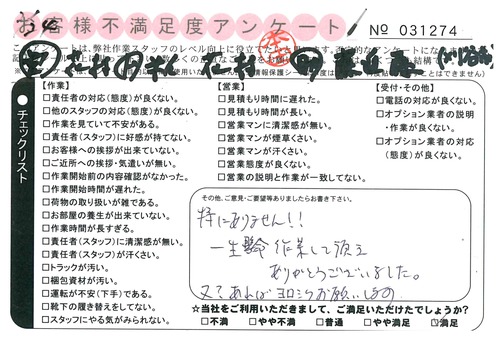 お客様不満足度アンケート
No 031274
チェックリスト
【作業】
□責任者の対応(態度)が良くない。
□他のスタッフの対応(態度)が良くない。
□作業を見ていて不安がある。
□責任者(スタッフ)に好感が持てない。
□お客様への挨拶が出来ていない。
□ご近所への挨拶・気遣いが無い。
□作業開始前の内容確認がなかった。
□作業開始時間が遅れた。
□荷物の取り扱いが雑である。
□お部屋の養生が出来ていない。
□作業時間が長すぎる。
□責任者(スタッフ)に清潔感が無い。
□責任者(スタッフ)が汗くさい。
□トラックが汚い。
□梱包資材が汚い。
□運転が不安(下手)である。
□靴下の履き替えをしてない。
□スタッフにやる気がみられない。
【営業】
□見積もり時間に遅れた。
□見積もり時間が長い。
□営業マンに清潔感が無い。
□営業マンが煙草くさい。
□営業マンが汗くさい。
□営業態度が良くない。
□営業の説明と作業が一致してない。
【受付・その他】
□電話の対応が良くない。
□オプション業者の説明
・作業が良くない。
□オプション業者の対応
(態度)が良くない。
その他、ご意見・ご要望等ありましたらお書き下さい。
特にありません!!
一生懸命作業して頂き
ありがとうございました。
又、あればヨロシクお願いします
☆当社をご利用いただきまして、ご満足いただけたでしょうか?
□不満 □やや不満 □普通 □やや満足 ☑満足